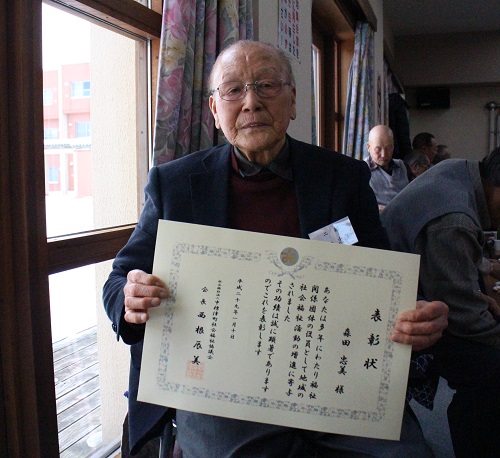 表彰状
森田 忠美 様
あなたは多年にわたり福祉
関係団体の役員として地域の
社会福祉活動の増進に寄与
されました
その功績は誠に顕著であります
のでこれを表彰します
平成二十九年一月十日
標津町社会福祉協議会
会長 西根辰美